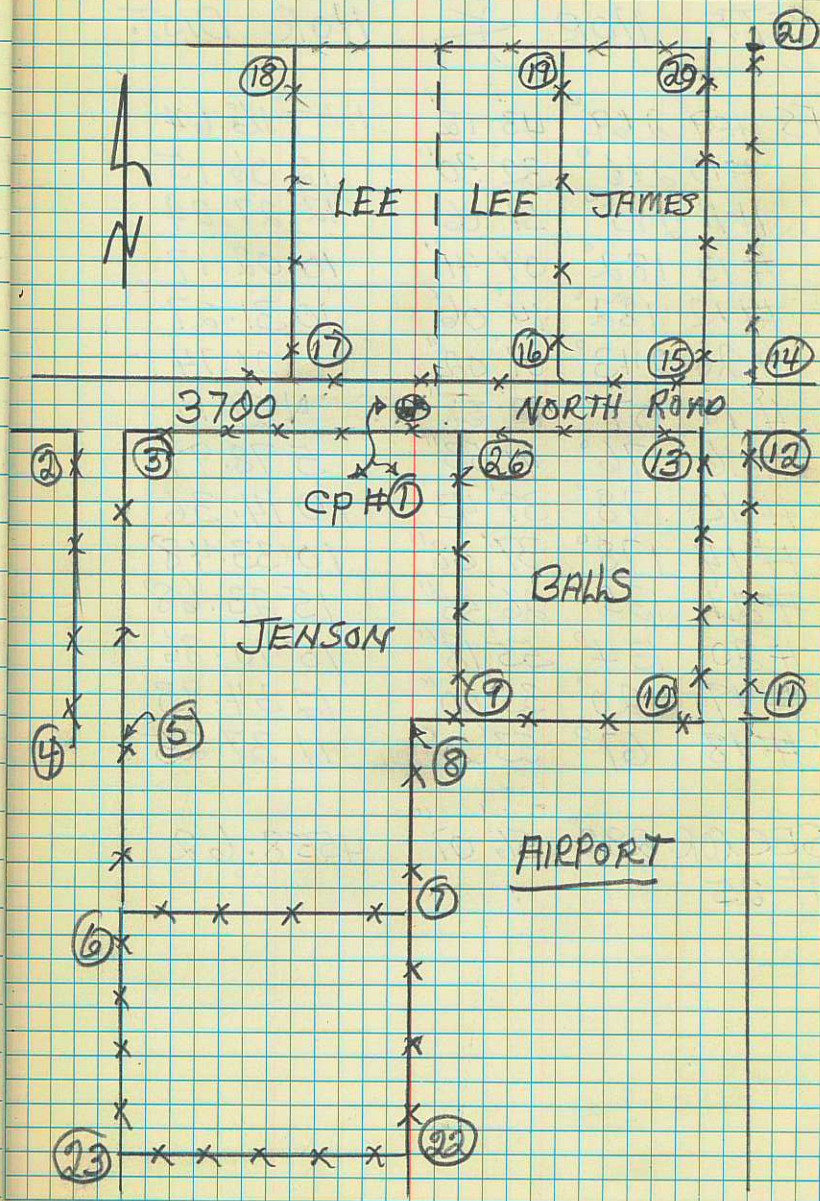 21
18
19
20
N
LEE
LEE
JAMES
17
16
15
14
3700
NORTH ROAD
2
3
26
13
12
CP #1
BALLS
JENSON
9
10
11
4
5
8
AIRPORT
7
6
23
22